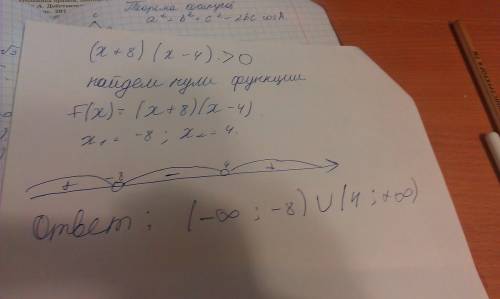 Теорема
a² = b² + c² - 2bc cos A.
(x+8)(x-4)>0
найдем нули функции
F(x)=(x+8)(x-4)
x₁=-8; x₂=4.
+ -8 - 4 +
Ответ: (-∞; -8)∪(4; +∞)